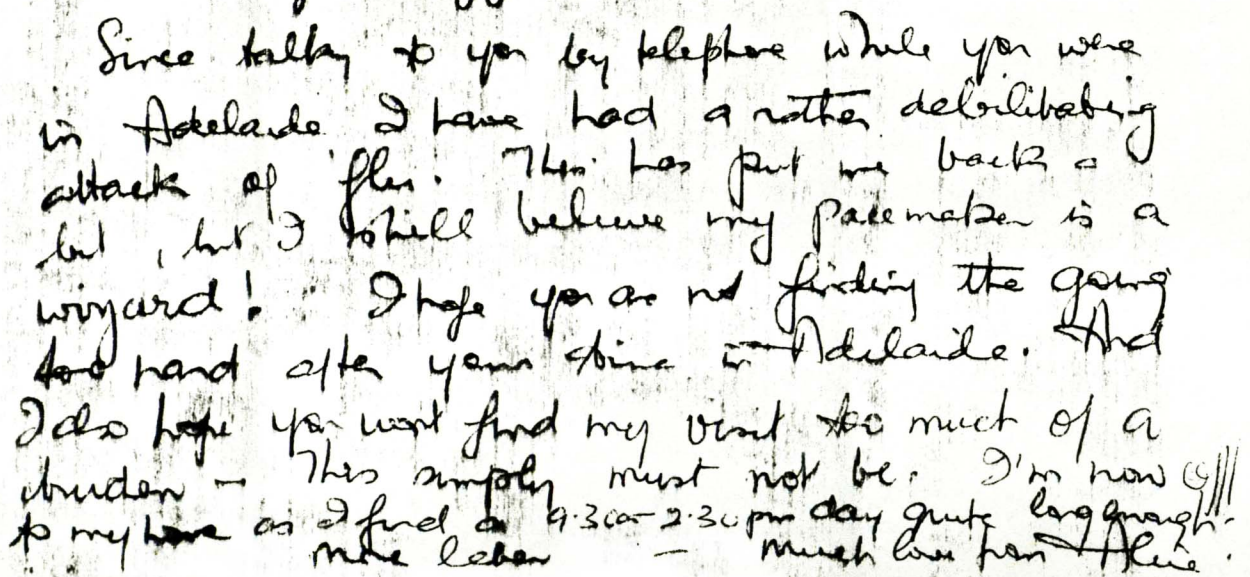 Since talking to you by telephone while you were
in Adelaide I have had a rather debilitating
attack of flu. This has put me back a
bit, but I still believe my pacemaker is a
wizard! I hope you are not finding the going
too hard after your time in Adelaide. And
I also hope you wont find my visit too much of a
burden – This simply must not be. I'm now
to my home as I find a 9.30am – 2.30pm day quite long enough.
more later – Much love from Alice.